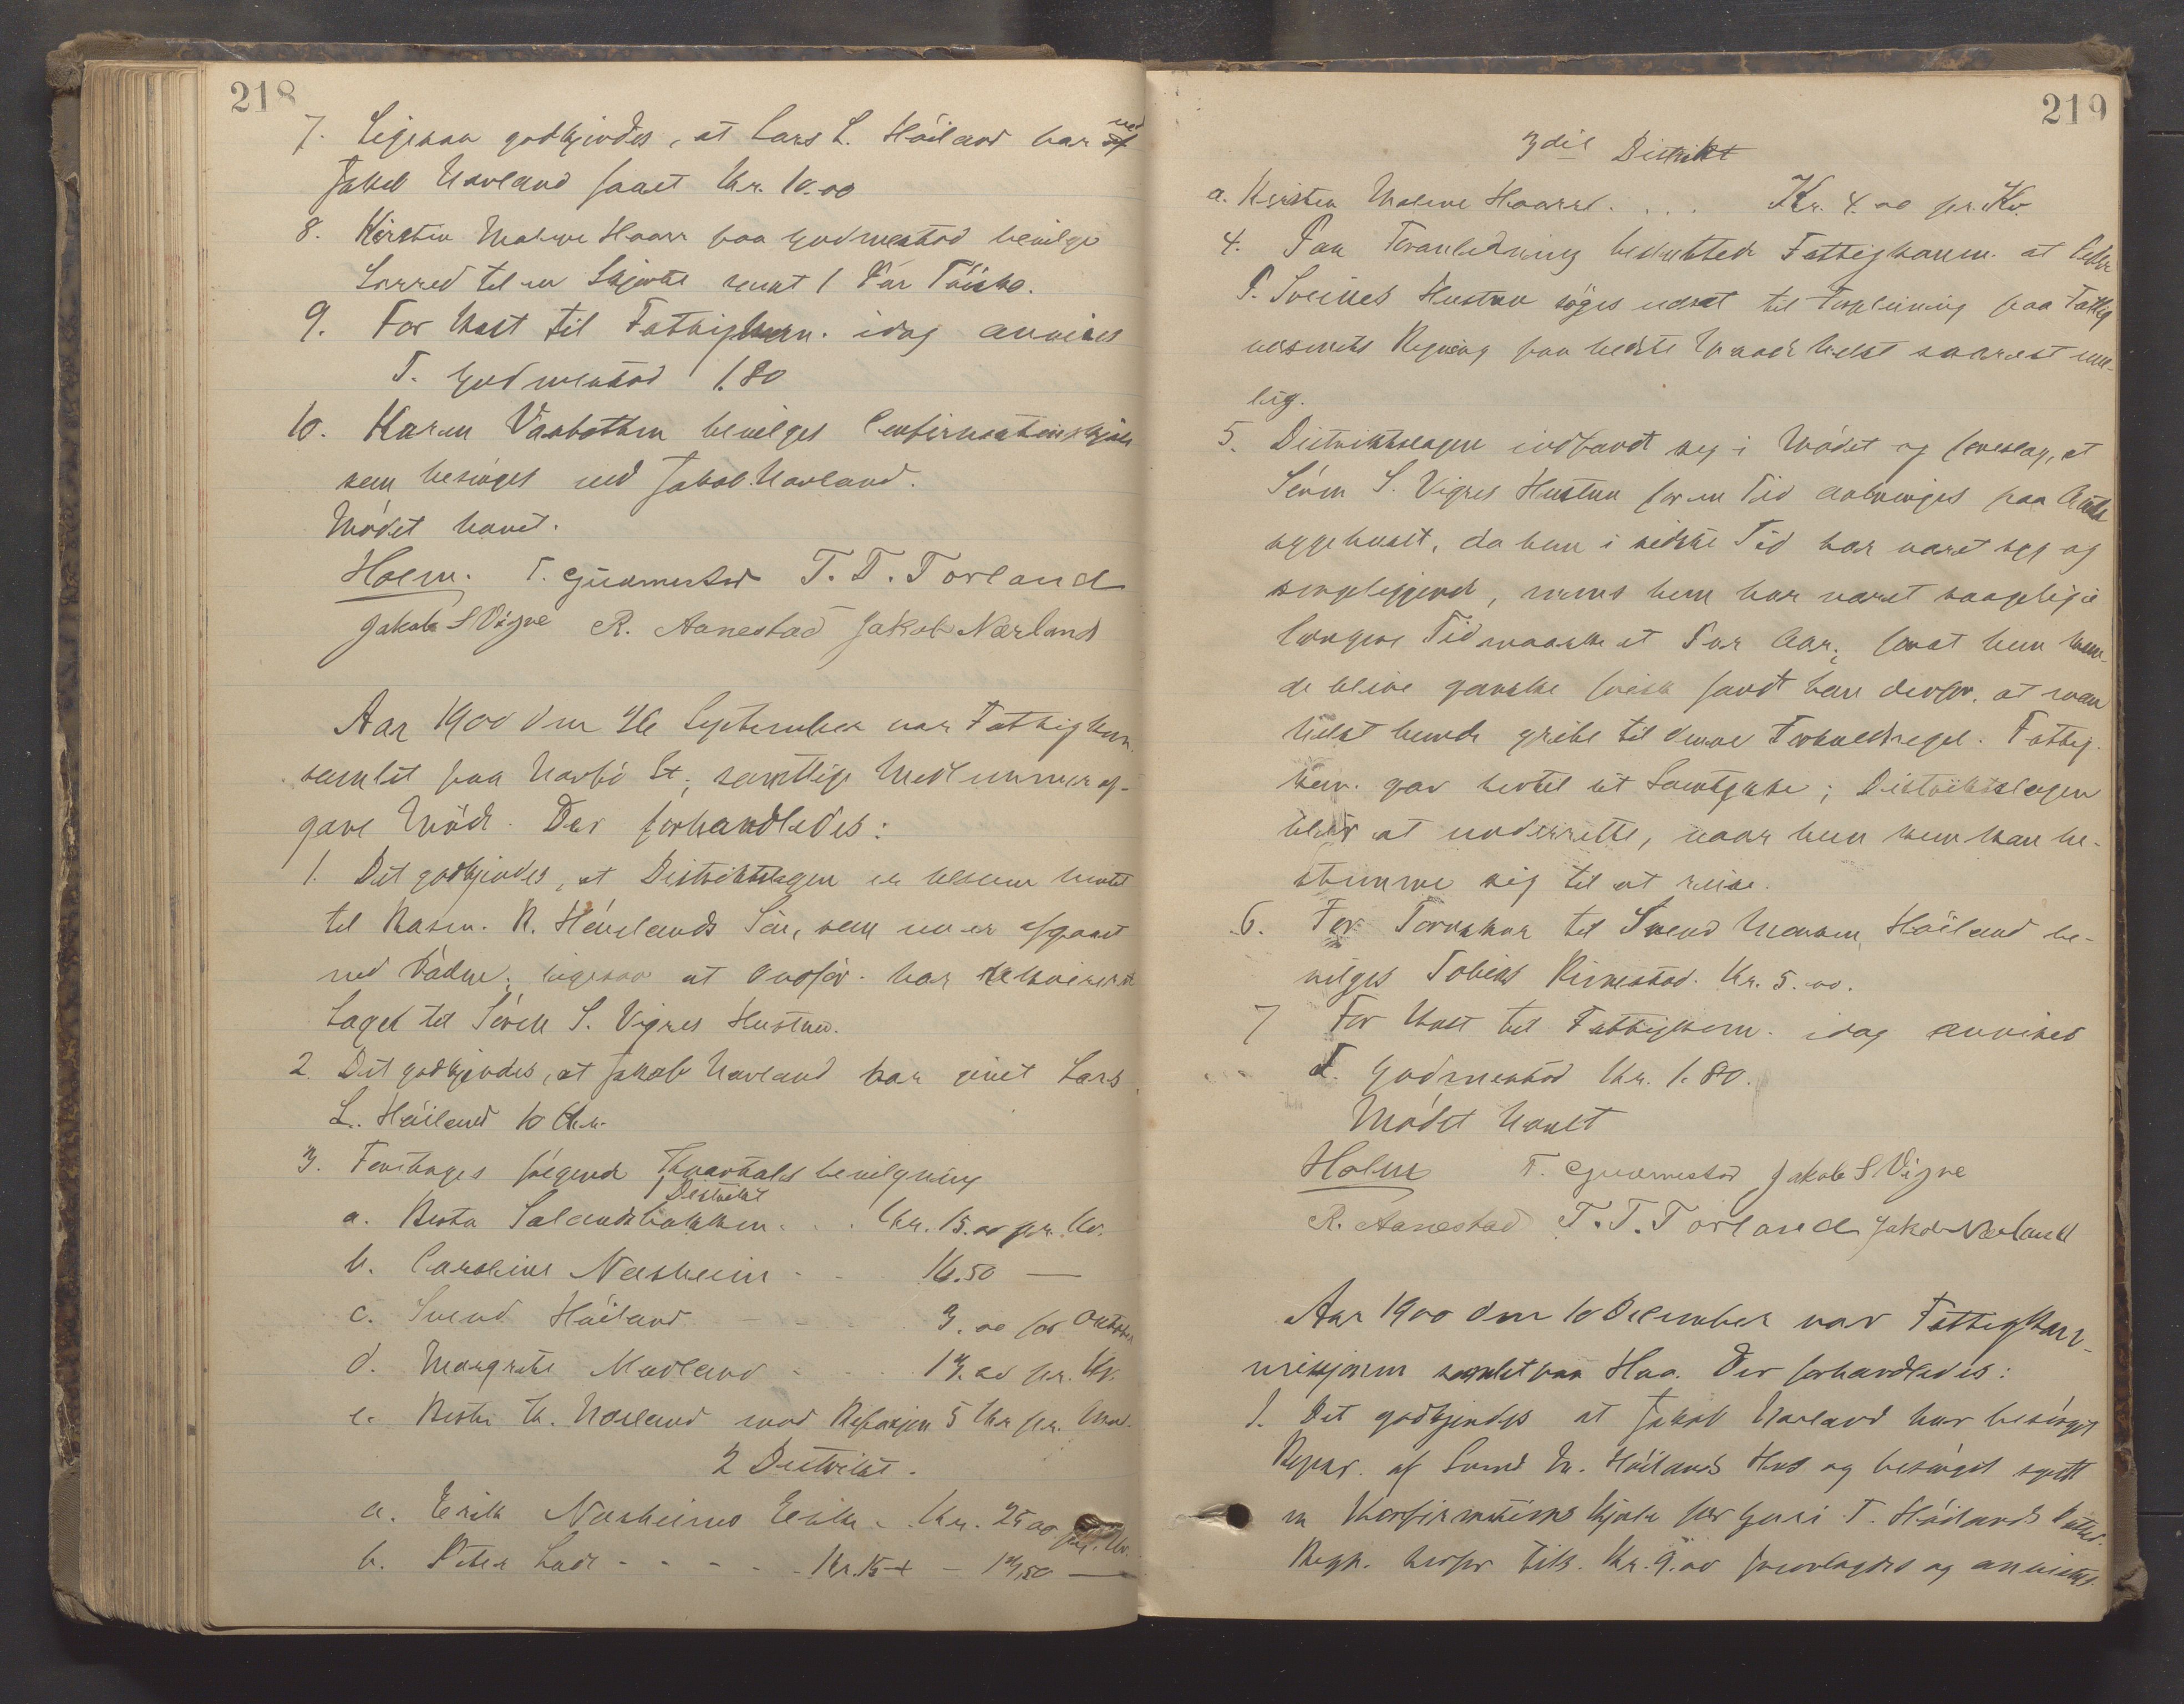 218
7. Ligesaa godkjendes, at Lars L. Höiland har ved
Jakob Nærland faaet Kr. 10.00
8. Kirsten Malene Haarr paa Gudmestad bevilges
Lerred til en Skjorte samt 1 Par Töisko.
9. For Kost til Fattigkom. idag anvises
T. Gudmestad 1.80
10. Karen Varbotthen bevilges Confirmationskjole
som besörges ved Jakob Nærland.
Mödet hævet.
Holm. T. Gudmestad T. T. Torland
Jakob S Vigre R. Aanestad Jakob Nærland
Aar 1900 den 26 September var Fattigkom.
samlet paa Nærbö St., samtlige Medlemmer af-
gave Möde. Der forhandledes:
1. Det godkjendes, at Distriktslægen er bleven hentet
til Rasm. R. Höilands Sön, som nu er afgaaet
ved Döden; ligesaa at Ordför. har rekvireret
Læget til Sören S. Vigres Hustru.
2. Det godkjendes, at Jakob Nærland har givet Lars
L. Höiland 10 Kr.
3. Foretoges fölgende Kvartalsbevilgning
1 Distrikt
a. Berta Salandsbakken . . . Kr. 15.00 pr. Kv.
b. Caroline Næsheim - - 16.50 —
c. Svend Höiland - - - 9.00 for Oktober
d. Margrete Madland - - - 13.00 pr. Kv.
e. Berte Th. Nærland mod Refusjon 5 Kr pr. Maa.
2 Distrikt.
a. Erik Næsheims Enke . . Kr. 25.00 pr. Kv.
b. Peter Lade - - - - - Kr. 15 + - 12,50 —
219
3die Distrikt
a. Kirsten Malene Haarr. . . . Kr. 4.00 pr. Kv.
4. Paa Foranledning besluttede Fattigkomm. at Peder
P. Sveines Hustru söges udsat til Forpleining paa Fattig
væsenets Regning paa bedste Maade helst snarest mu-
lig.
5. Distriktslægen indfandt sig i Mödet og foreslog, at
Sören S. Vigres Hustru for en Tid anbringes paa Amts
sygehuset, da hun i sidste Tid har været syg og
sengeliggende, mens hun har været svagelig i
længere Tid maaske et Par Aar; forat hun kun-
de blive ganske frisk fandt han derfor, at man
helst burde gribe til denne Forholdsregel. Fattig-
kom. gav hertil sit Samtykke; Distriktslægen
bliver at underrette, naar hun kan be-
stemme sig til at reise.
6. For Torvskur til Svend Monsen Höiland be-
vilges Tobias Kirkestad. Kr. 5.00.
7 For Kost til Fattigkom. idag anvises
T. Gudmestad Kr. 1.80.
Mödet hævet
Holm T. Gudmestad Jakob S Vigre
R. Aanestad T. T. Torland Jakob Nærland
Aar 1900 den 10 December var Fattigkom-
missjonen samlet paa Haa. Der forhandledes:
1. Det godkjendes at Jakob Nærland har besörget
Repar. af Svend M. Höilands Hus og besörget syet
en Konfirmations Kjole for Guri T. Höilands Datter.
Regn. herfor tils. Kr. 9.00 fremlagdes og anvistes.